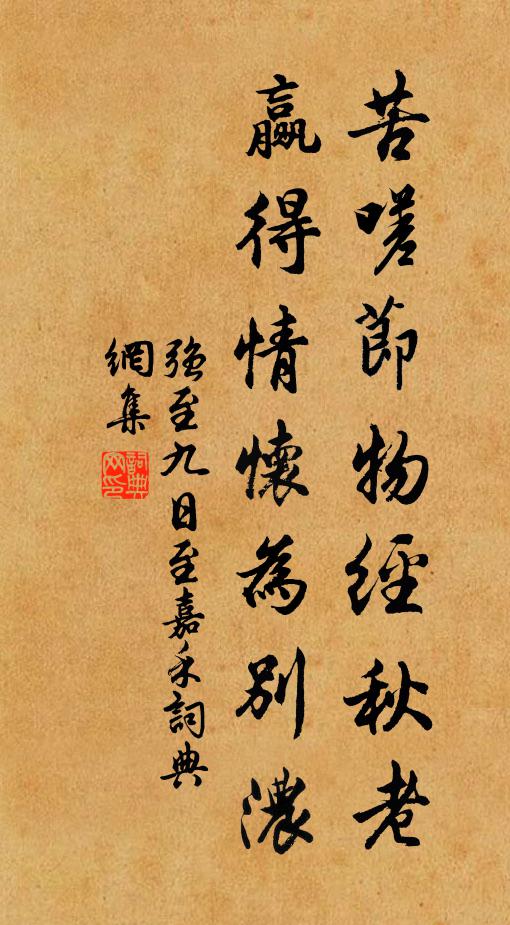 苦嗟節物經秋老
贏得情懷為別濃
強至九日至嘉禾詞典
網集
詞典
網印